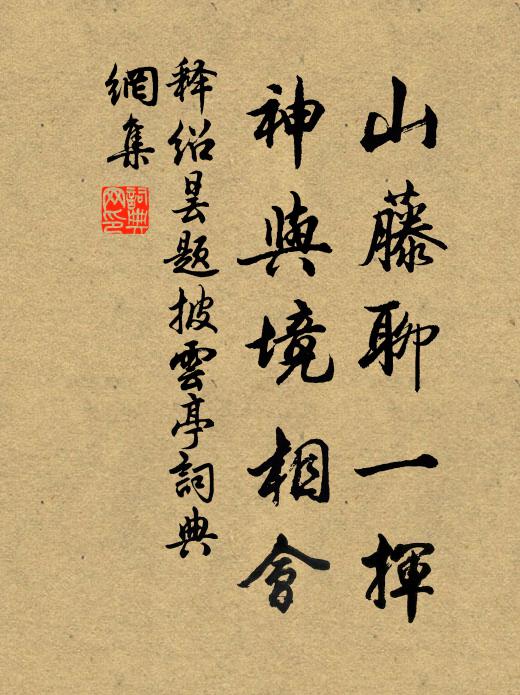 山藤聊一揮
神與境相會
释绍昙题披雲亭詞典
網集
詞典網印